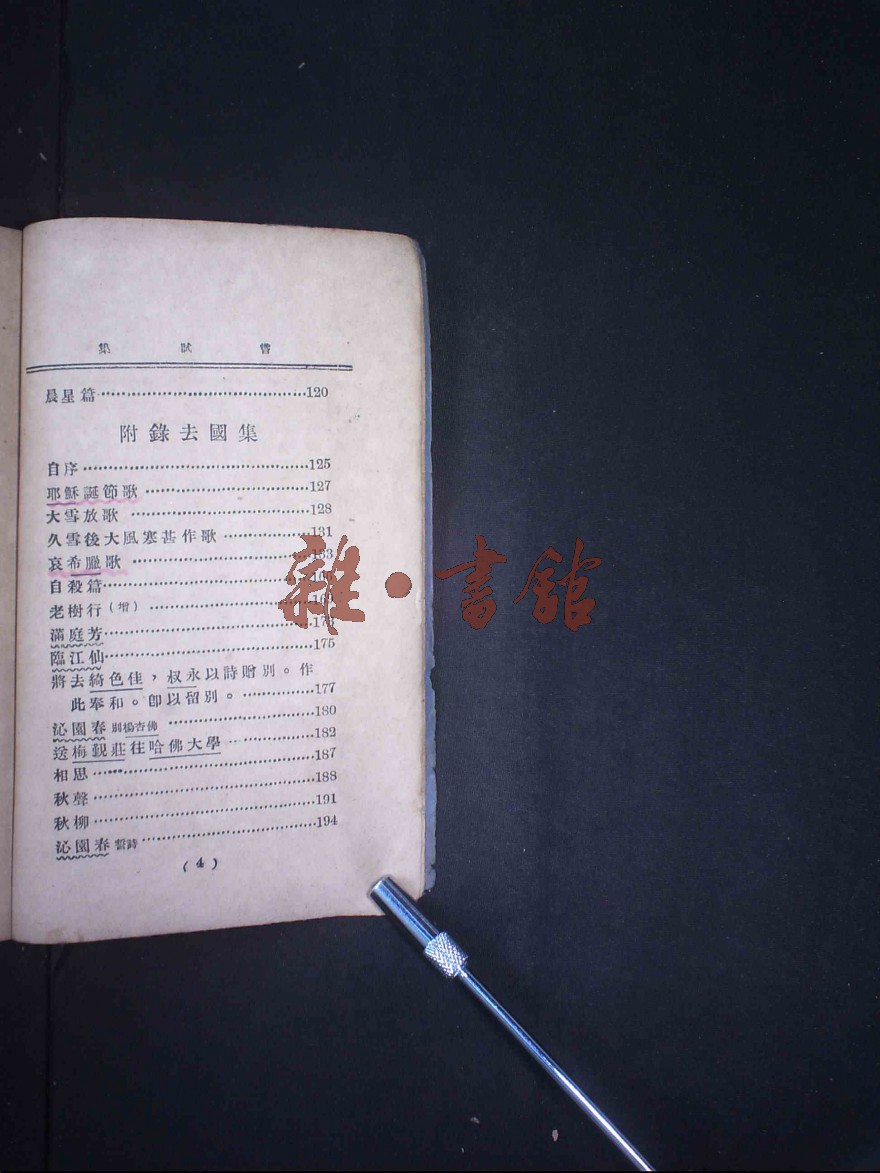 集試嘗
晨星篇……………………………………120
附錄去國集
自序……………………………………125
耶穌誕節歌……………………………127
大雪放歌………………………………128
久雪後大風寒甚作歌…………………131
哀希臘歌………………………………133
自殺篇……………………………………
老樹行(增)………………………………
滿庭芳……………………………………
臨江仙…………………………………175
將去綺色佳，叔永以詩贈別。作
此奉和。卽以留別。…………………177
沁園春 別楊杏佛………………………180
送梅覲莊往哈佛大學…………………182
相思……………………………………187
秋聲……………………………………188
秋柳……………………………………191
沁園春 誓詩……………………………194
(4)
雜·書館